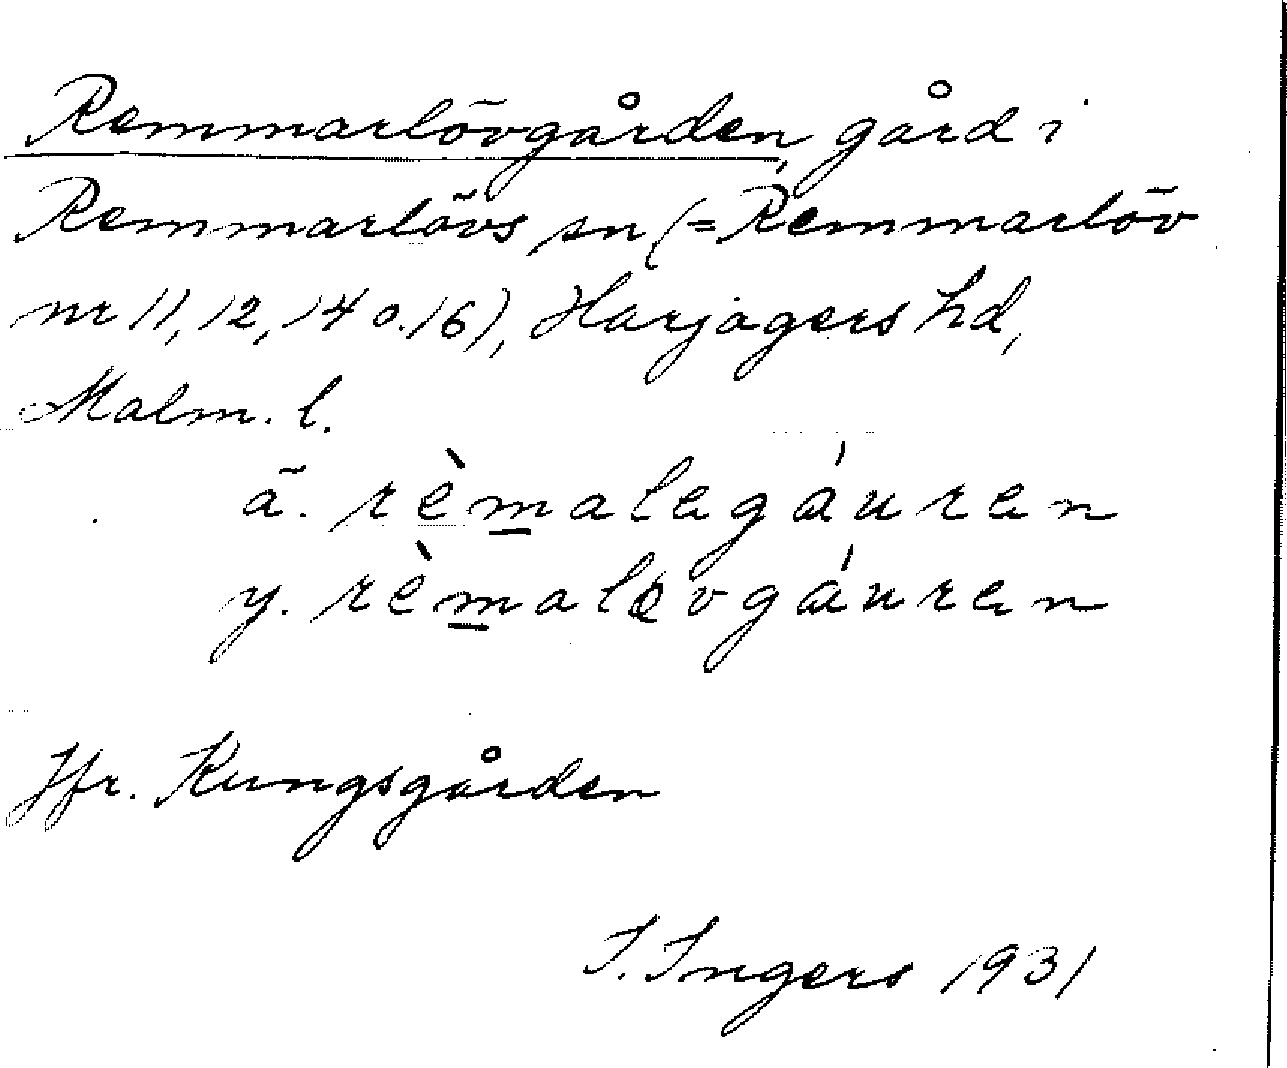 Remmarlövgården, gård i
Remmarlövs sn (= Remmarlöv
nr 11, 12, 14 o. 16), Harjagers hd,
Malm. l.
ä. rèmalegáuren
y. rèmalevgáuren
Jfr. Kungsgården
I. Ingers 1931